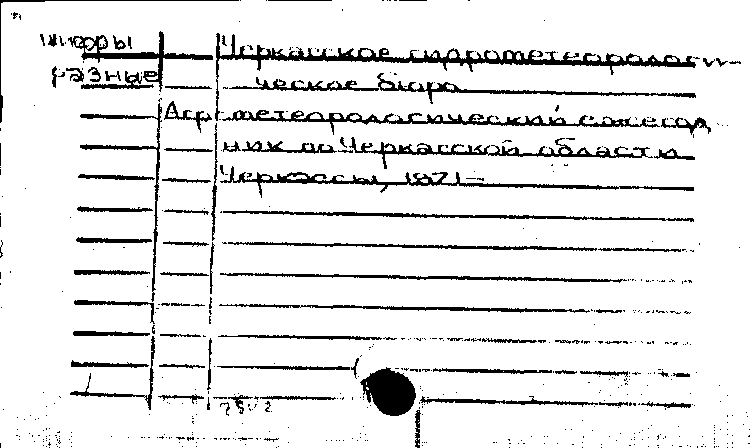 шифры
разные
Черкасское гидрометеорологи-
ческое бюро
Агрометеорологический ежегод
ник по Черкасской области
Черкассы, 1971-